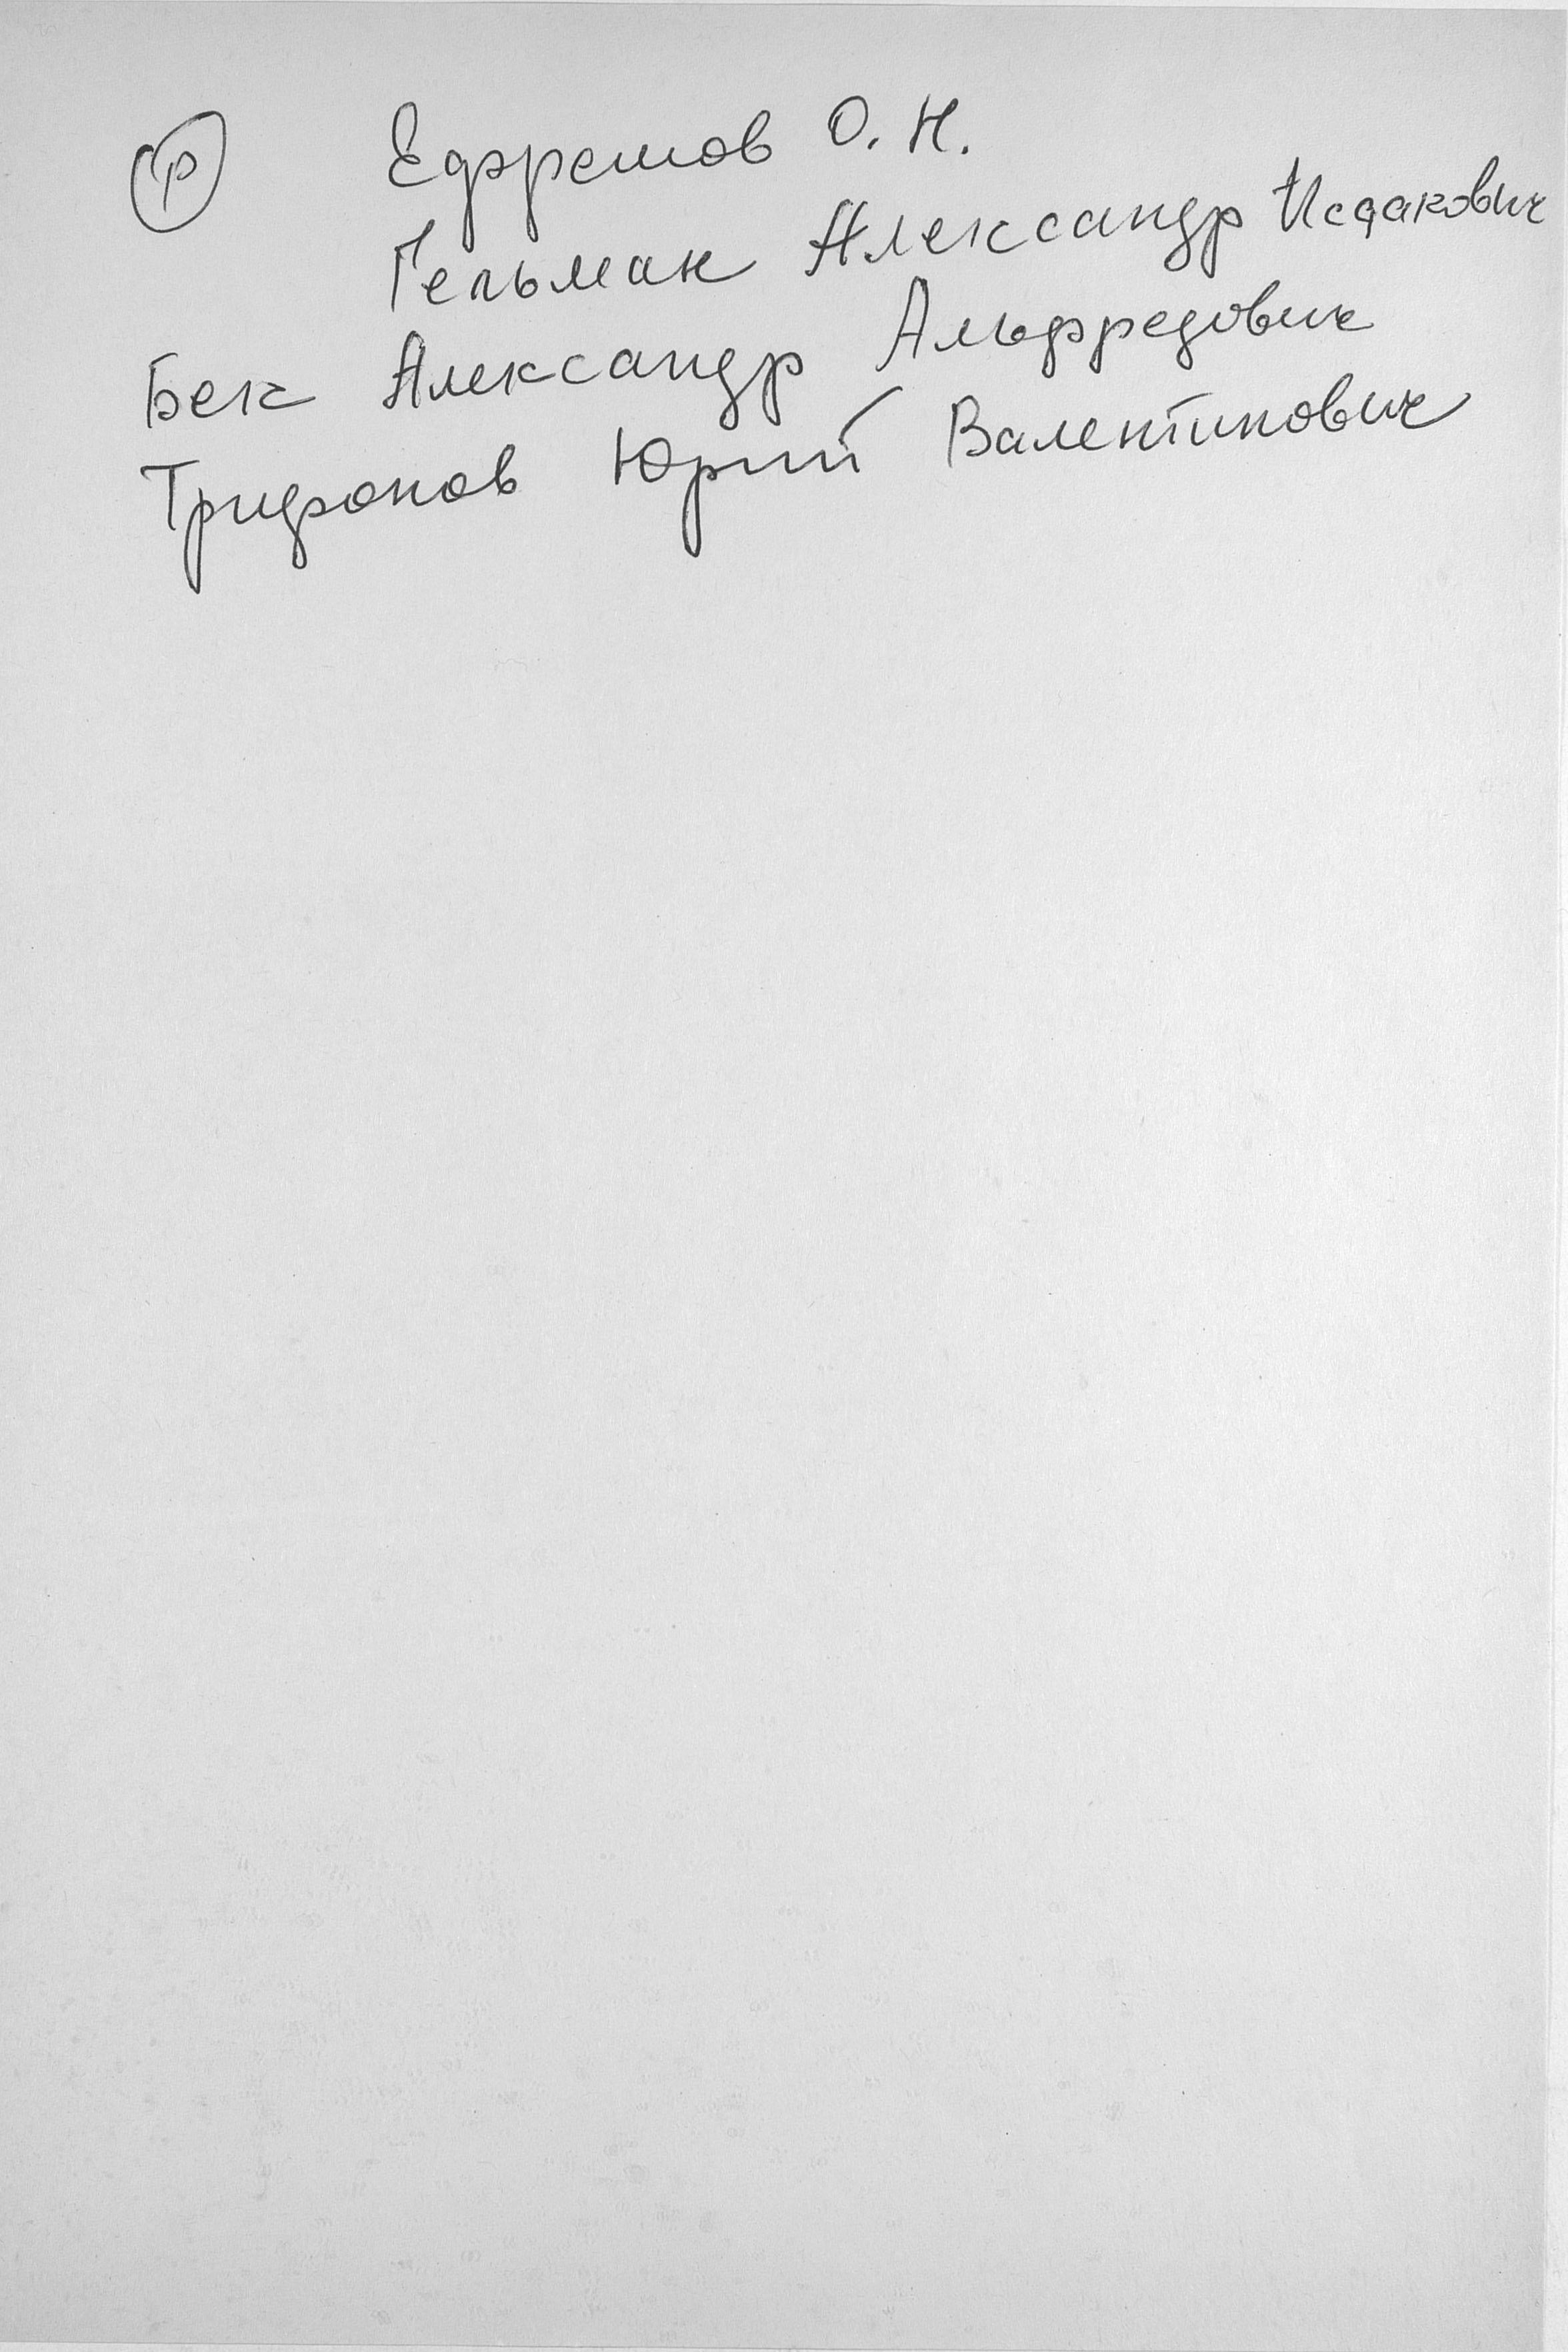 Р Ефремов О. Н.
Гельман Александр Исаакович
Бек Александр Альфредович
Трифонов Юрий Валентинович